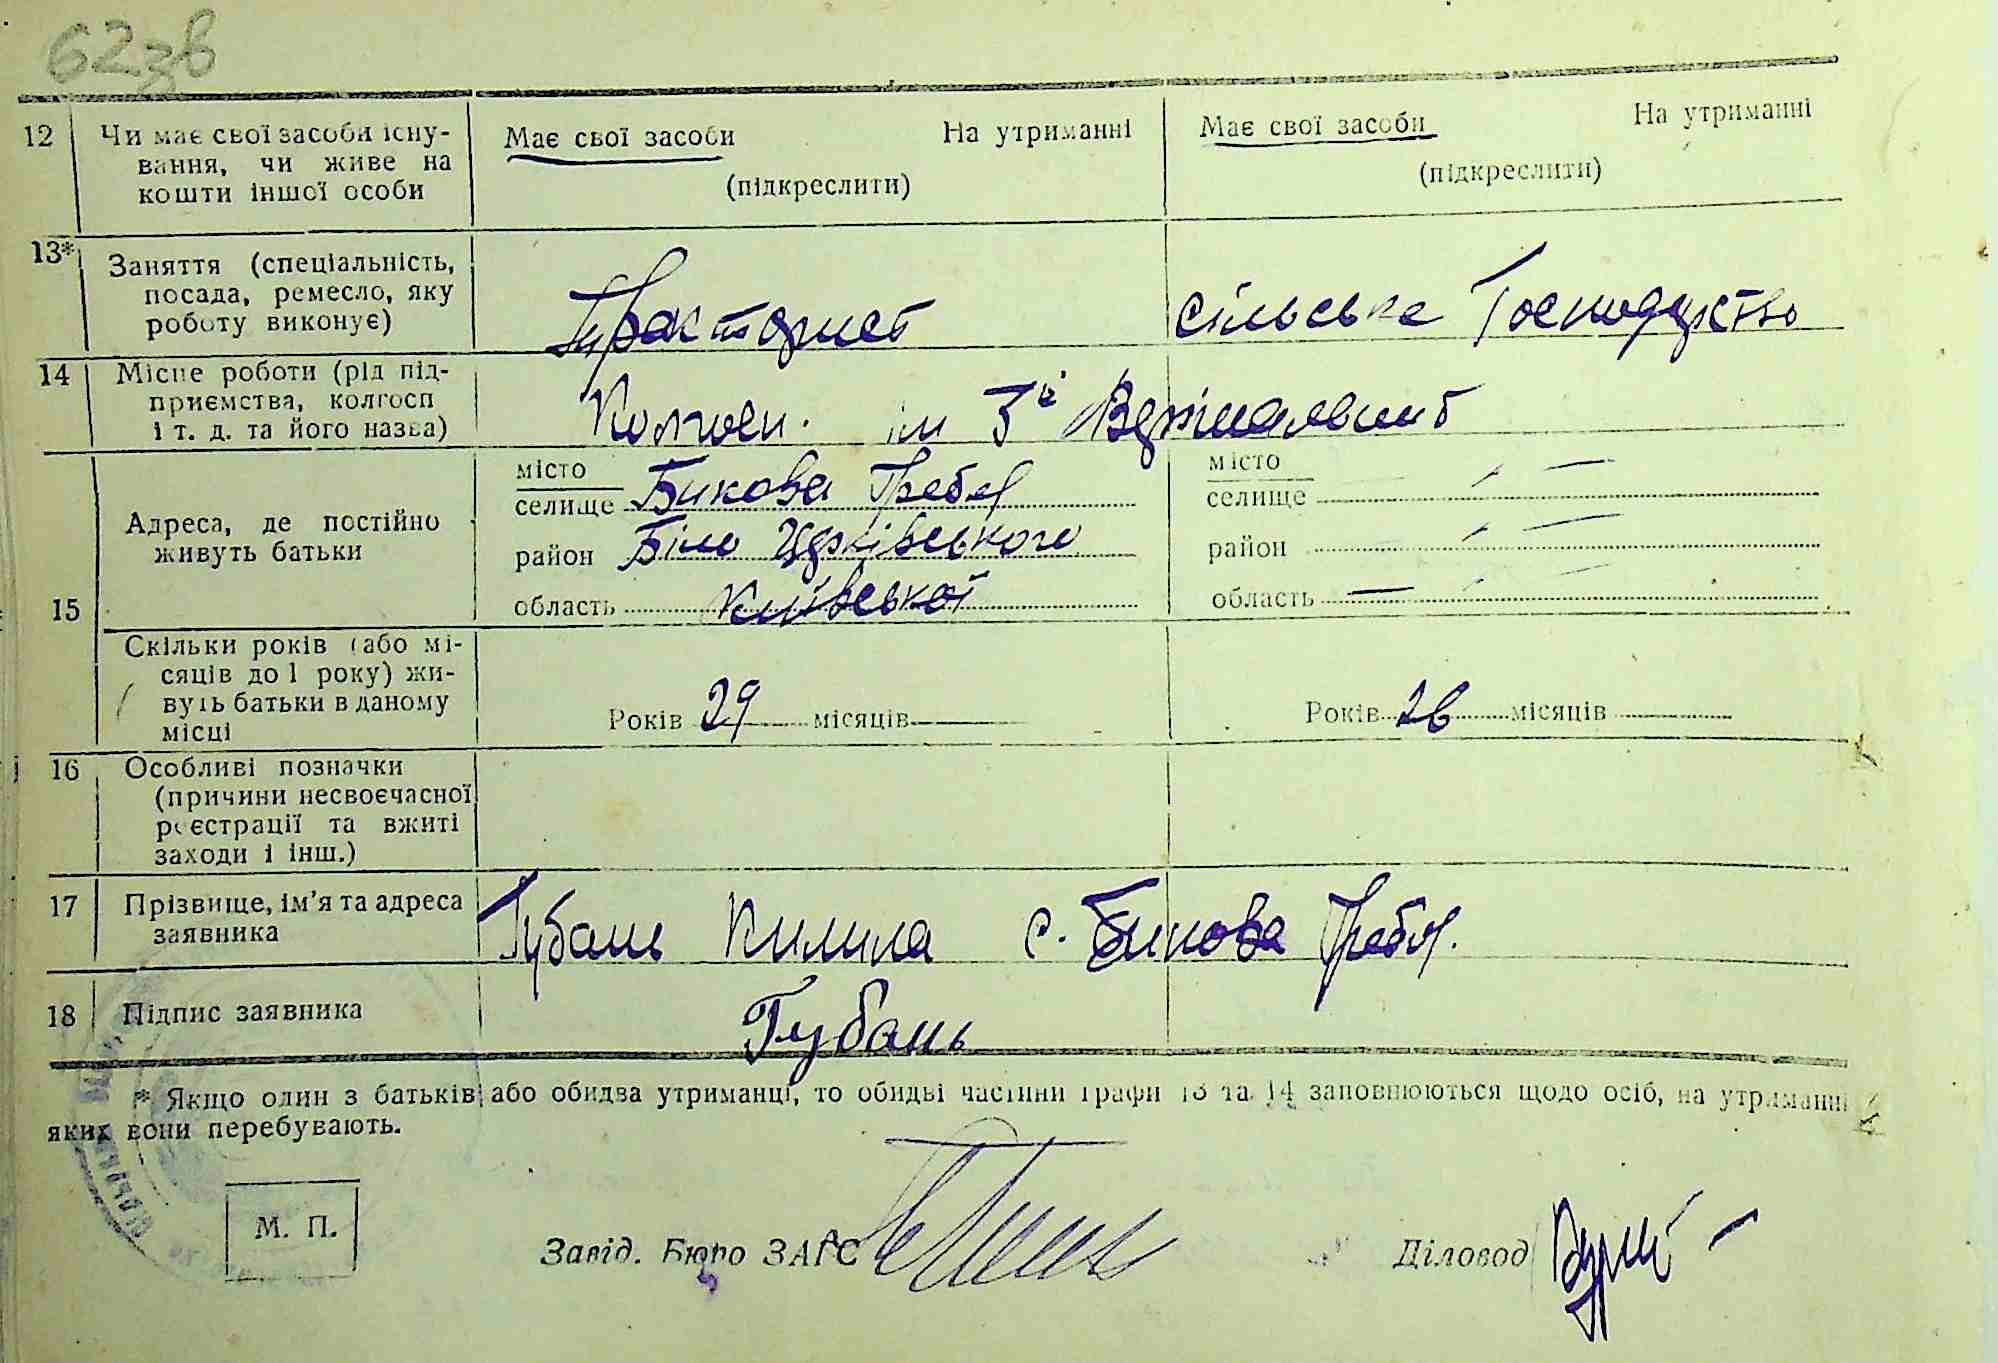 62зв
12 Чи має свої засоби існу-
вання, чи живе на
кошти іншої особи
Має свої засоби На утриманні
(підкреслити)
Має свої засоби На утриманні
(підкреслити)
13* Заняття (спеціальність,
посада, ремесло, яку
роботу виконує)
Тракторист
сільське Господарство
14 Місце роботи (рід під-
приємства, колгосп
і т. д. та його назва)
Колгосп. ім 3й
15 Адреса, де постійно
живуть батьки
місто
селище Бикова Гребля
район Біло Церківського
область Київської
місто
селище —
район —
область —
Скільки років (або мі-
сяців до 1 року) жи-
вуть батьки в даному
місці
Років 29 місяців
Років 26 місяців
16 Особливі позначки
(причини несвоєчасної
реєстрації та вжиті
заходи і інш.)
17 Прізвище, ім'я та адреса
заявника
Губань Килина с. Бикова Гребля.
18 Підпис заявника
Губань
* Якщо один з батьків або обидва утриманці, то обидві частини графи 13 та 14 заповнюються щодо осіб, на утриманні
яких вони перебувають.
М. П.
Завід. Бюро ЗАГС
Діловод